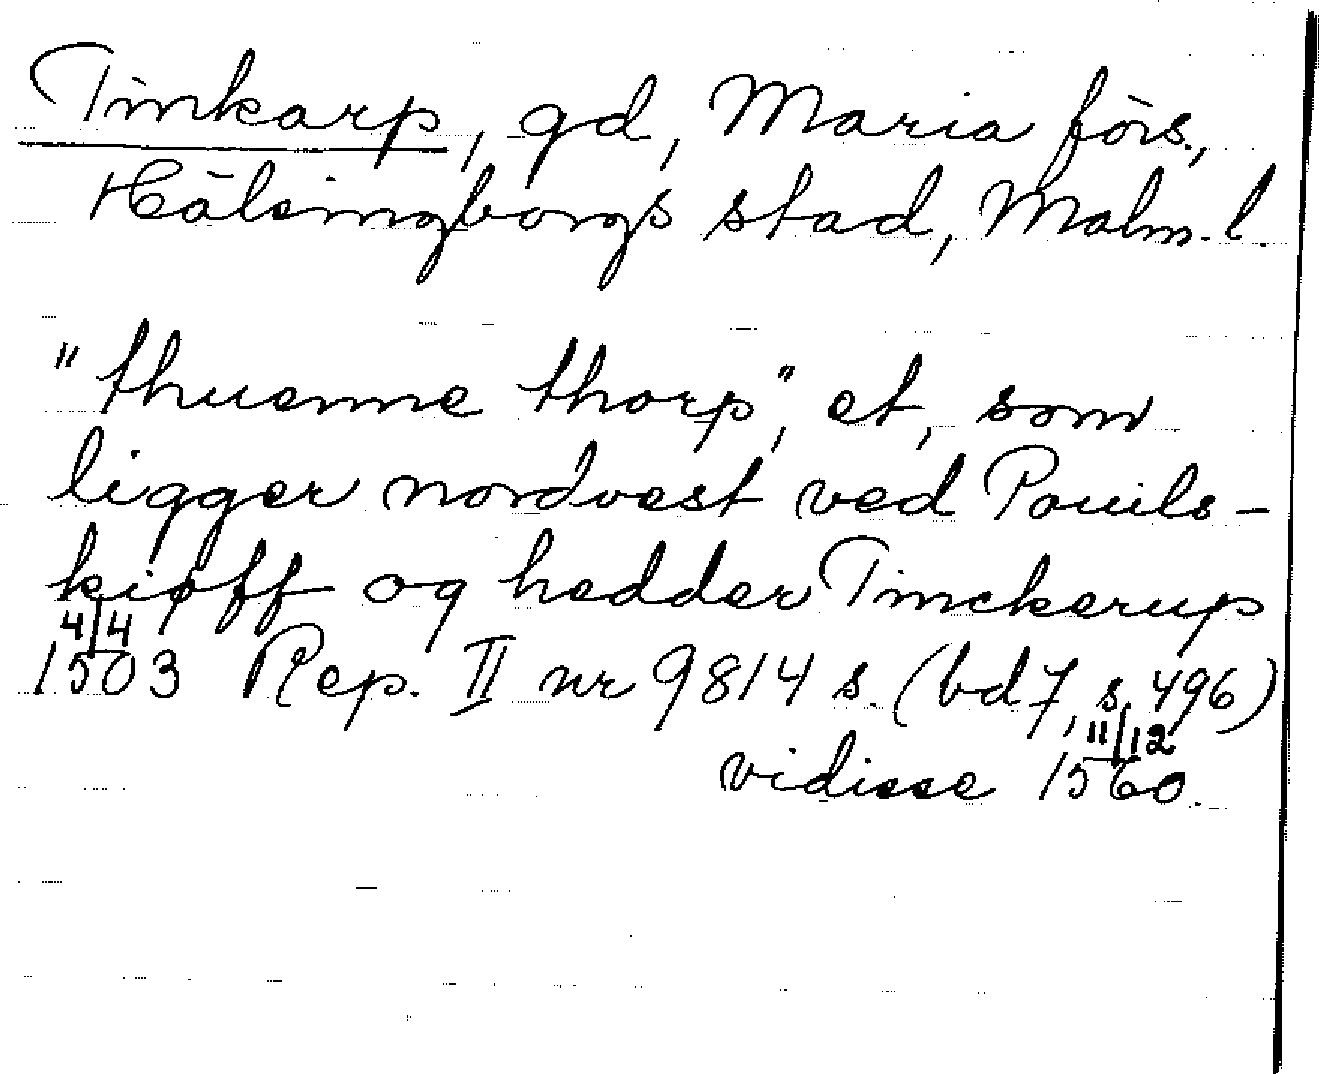 Tinkarp, gd, Maria förs.,
Hälsingborgs stad, Malm. l.
"thuenne thorp", et, som
ligger nordvest ved Pouils-
kiøff og hedder Tinckerup
4/4 1503 Rep. II nr 9814 s. (bd 7, s. 496)
vidisse 11/12 1560.